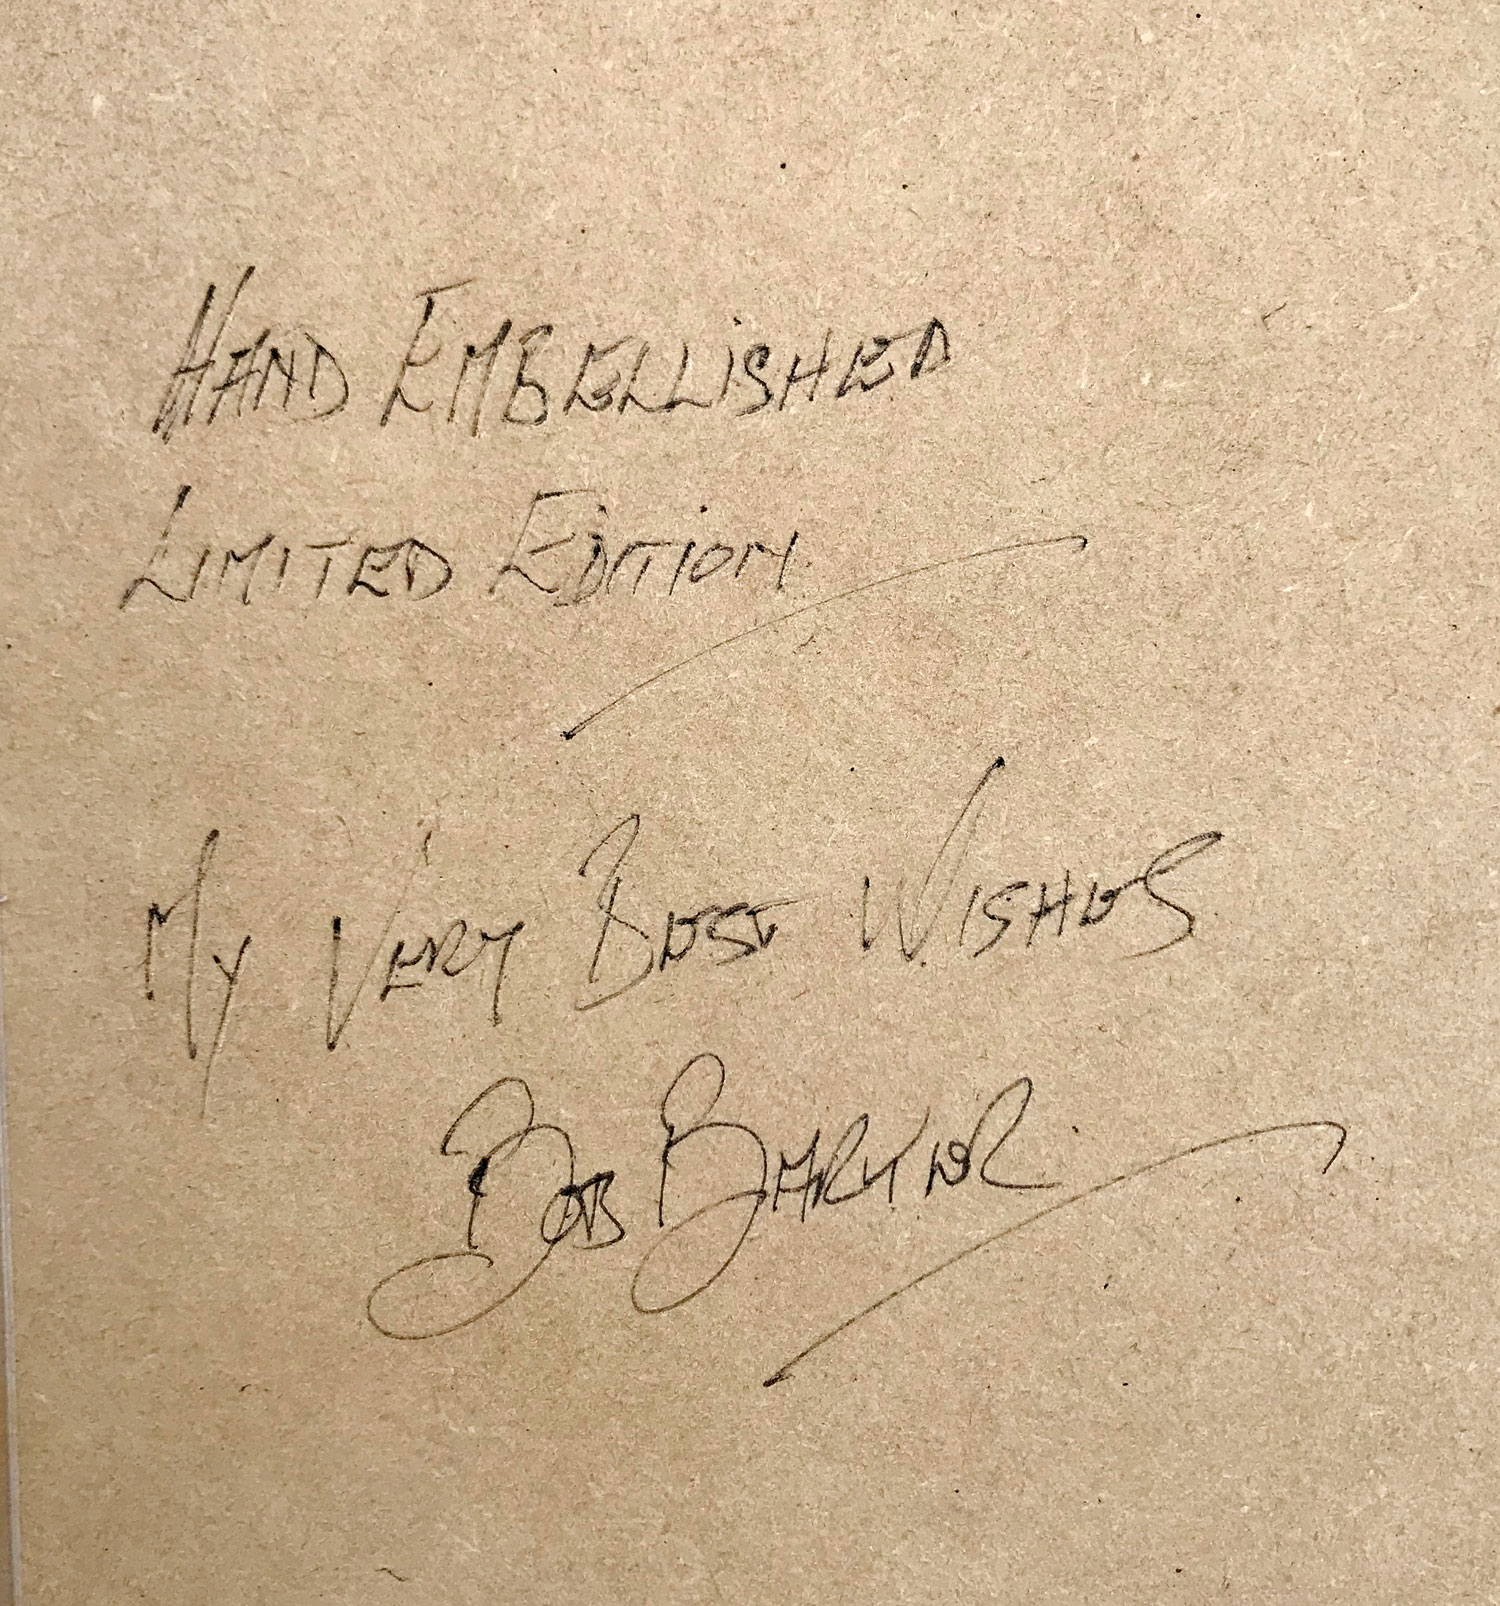 Hand Embellished
Limited Edition
My Very Best Wishes
Bob Barker